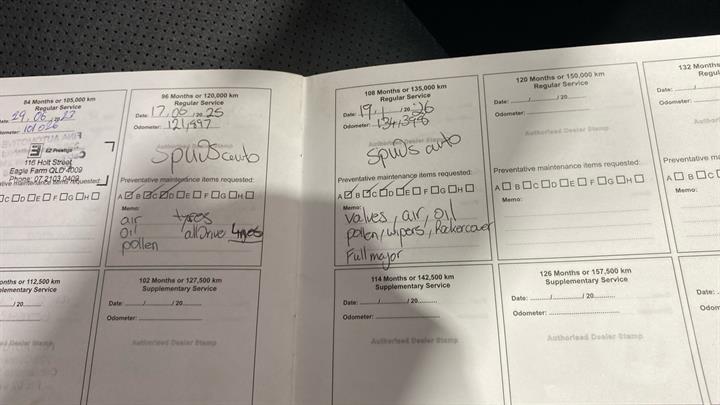 84 Months or 105,000 km
Regular Service
Date: 29, 06, 20
101 026
EZ Prestige
116 Holt Street
Eagle Farm QLD 4009
Phone: 07 2103 0409
maintenance items requested:
C D E F G H
onths or 112,500 km
lementary Service
/ 20
ed Dealer Stamp
96 Months or 120,000 km
Regular Service
Date: 17, 06, 20 25
Odometer: 121,897
auto
Preventative maintenance items requested:
A B C D E F G H
Memo:
air tyres
oil allDrive 4tyres
pollen
102 Months or 127,500 km
Supplementary Service
Date: / / 20
Odometer:
Authorised Dealer Stamp
108 Months or 135,000 km
Regular Service
Date: 19, 1, 20 26
Odometer: 134,398
Authorised Dealer Stamp
auto
Preventative maintenance items requested:
A B C D E F G H
Memo:
valves, air, oil
pollen, wipers, Rockercover
Full major
114 Months or 142,500 km
Supplementary Service
Date: / / 20
Odometer:
Authorised Dealer Stamp
120 Months or 150,000 km
Regular Service
Date: / / 20
Odometer:
Authorised Dealer Stamp
Preventative maintenance items requested:
A B C D E F G H
Memo:
126 Months or 157,500 km
Supplementary Service
Date: / / 20
Odometer:
Authorised Dealer Stamp
132 Months
Regul
Date:
Odometer:
Preventative m
A B C
Memo:
Date:
Odom